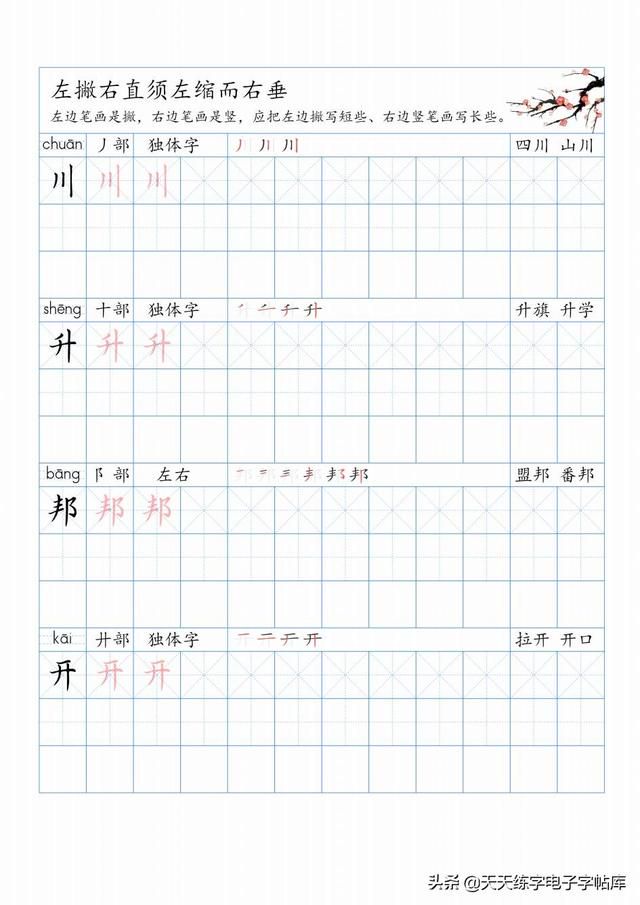 左撇右直须左缩而右垂
左边笔画是撇，右边笔画是竖，应把左边撇写短些、右边竖笔画写长些。
chuān 丿部 独体字 丿 川 川 四川 山川
川 川 川
shēng 十部 独体字 升 四旗 升学
升 升 升
bāng 阝部 左右 邦 邦 盟邦 番邦
邦 邦 邦
kāi 廾部 独体字 一 二 开 开 拉开 开口
开 开 开
头条 @天天练字电子字帖库